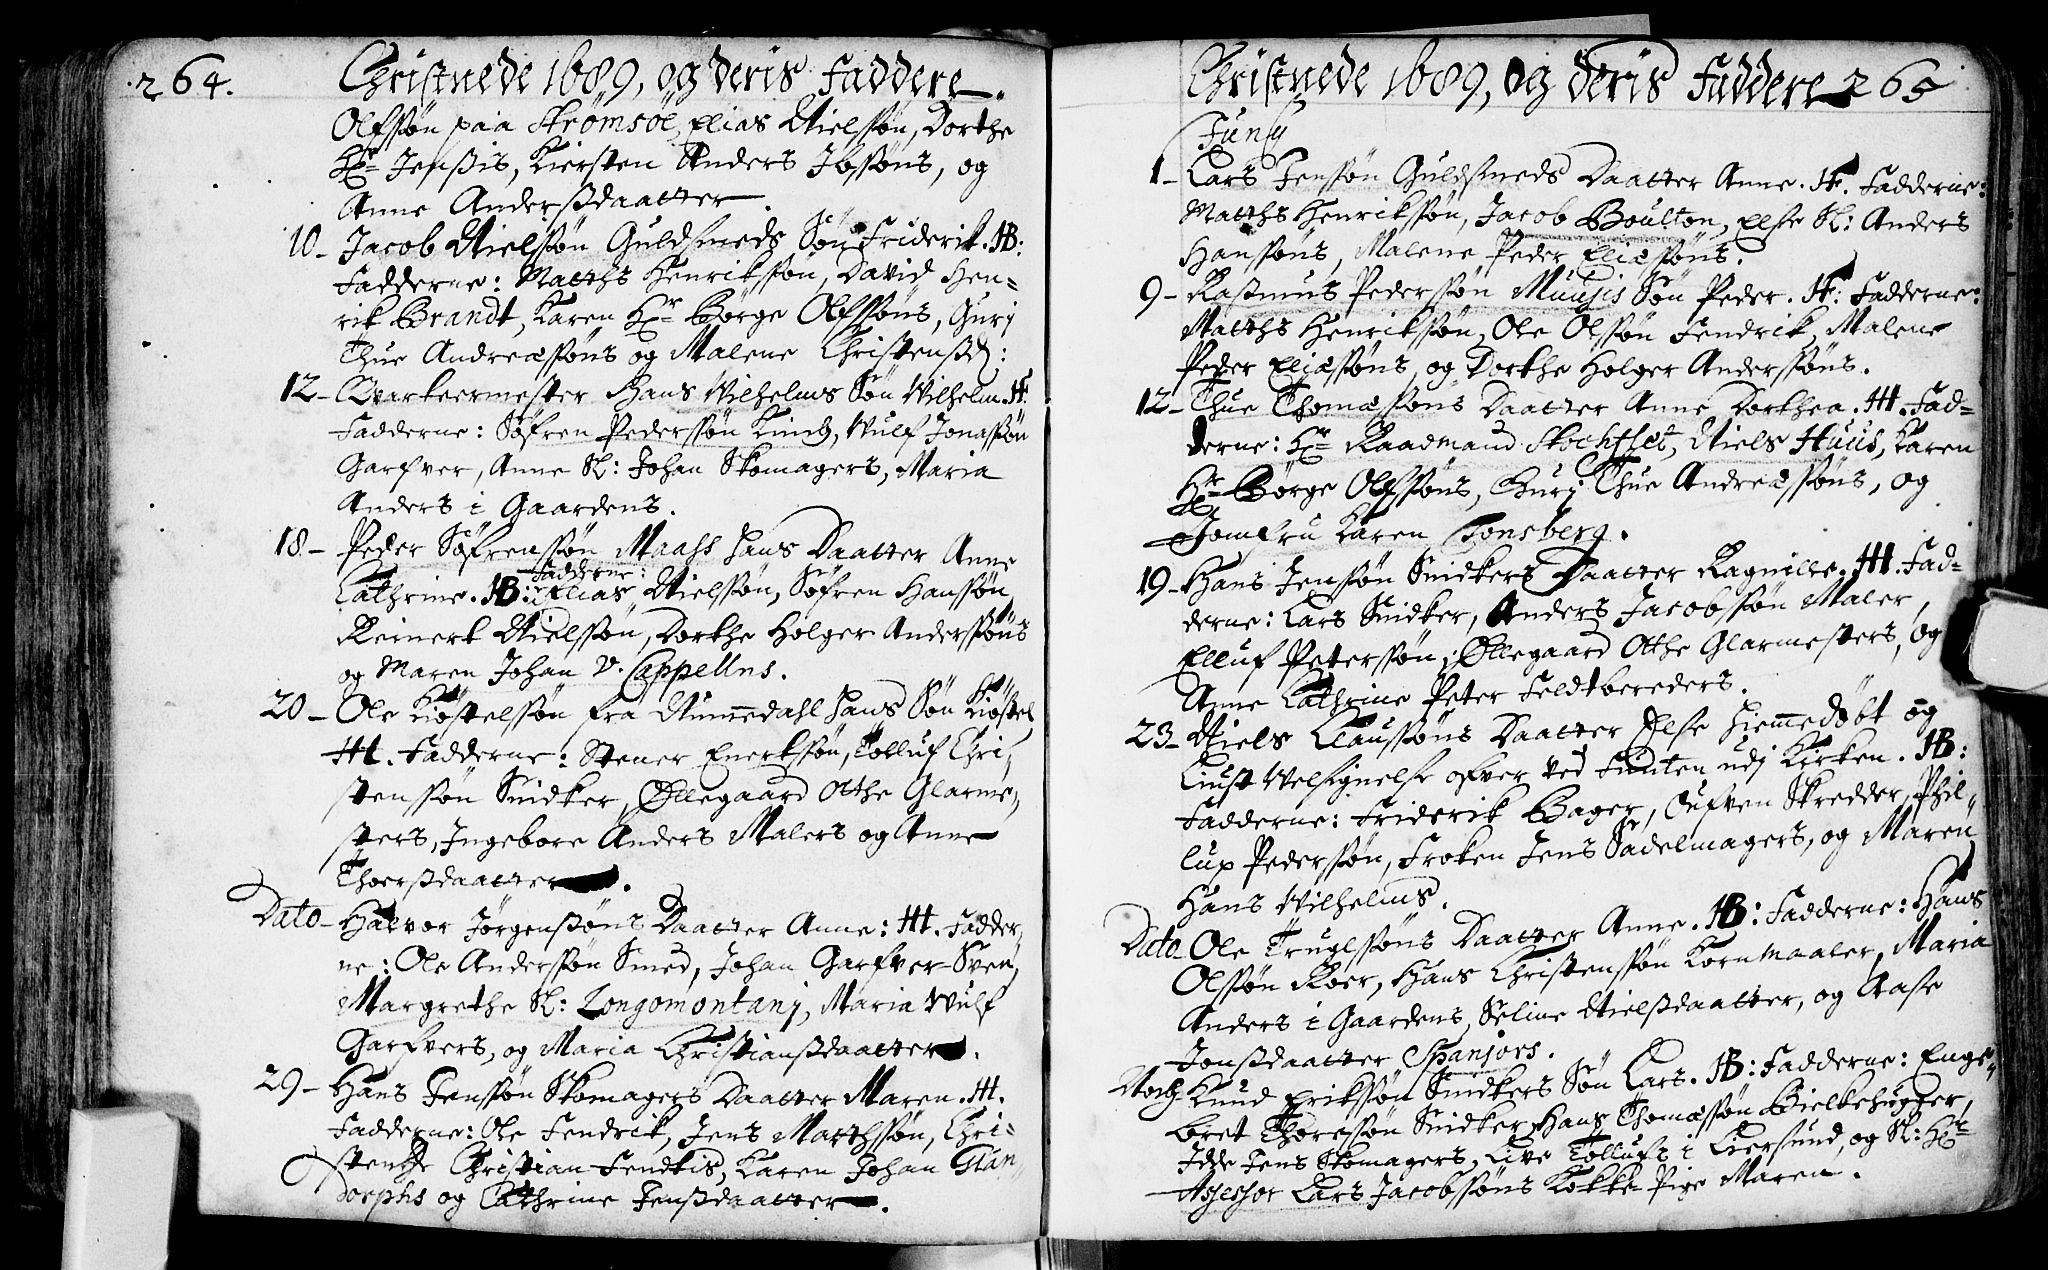 264.
Christnede 1689, og deris Faddere.
Olfssøn paa Strømsøe, Elias Nielssøn, Dorthe
Hr. Jenssis, Kiersten Anders Ibssøns, og
Anne Anderssdaatter.
10 - Jacob Nielssøn Guldsmeds Søn Friderik. HB:
Fadderne: Matths Henrikssøn, David Hen=
rik Brandt, Karen Hr. Børge Olfssøns, Gurj
Thue Andreæssøns og Malene Christenssd:
12 - Qvarteermester Hans Wilhelms Søn Wilhelm. H.
Fadderne: Søfren Pederssøn Kinch, Wulf Jonassøn
Garfver, Anne Sl: Johan Skomagers, Maria
Anders i Gaardens.
18 - Peder Søfrenssøn Maass hans Daatter Anne
Cathrine. HB: Fadderne: Elias Nielssøn, Søfren Hanssøn,
Reinert Nielssøn, Dorthe Holger Anderssøns
og Maren Johan v. Cappellns.
20 - Ole Kiøstelssøn fra Nummedahl hans Søn Kiøstel
HH. Fadderne: Stener Enerkssøn, Tolluf Chri,
stenssøn Snidker, Øllegaard Otthe Glarme,
sters, Ingebore Anders Malers og Anne
Thoerssdaatter.
Dato - Halvor Jørgenssøns Daatter Anne: HH. Fadder,
ne: Ole Anderssøn Smed, Johan Garfver-Sven,
Margrethe Sl: Longomontanj, Maria Wulf
Garfvers, og Maria Christianssdaatter.
29 - Hans Jenssøn Skomagers Daatter Maren. HH.
Fadderne: Ole Fendrik, Jens Matthssøn, Chri=
stenze Christian Fendtis, Karen Johan Glan,
dorphs og Cathrine Jenssdaatter.
Christnede 1689, og deris Faddere 265
Junij
1 - Lars Jenssøn Guldsmeds Daatter Anne. H. Fadderne:
Matths Henrikssøn, Jacob Boulton, Else Sl: Anders
Hanssøns, Malene Peder Eliæssøns.
9 - Rasmus Pederssøn Muusis Søn Peder. H: Fadderne:
Matths Henrikssøn, Ole Olssøn Fendrik, Malene
Peder Eliæssøns, og Dorthe Holger Anderssøns.
12 - Thue Thomæssøns Daatter Anne Dorthea. HH. Fad=
derne: Hr. Raadmand Stochflet, Niels Huus, Karen
Hr. Børge Olfssøns, Gurj Thue Andreæssøns, og
Jomfru Karen Tonsberg.
19 - Hans Jenssøn Snidkers Daatter Ragnille. HH. Fad=
derne: Lars Snidker, Anders Jacobssøn Maler,
Elluf Peterssøn, Øllegaard Otthe Glarmesters, og
Anne Cathrine Peter Feldtbereders.
23 - Niels Claussøns Daatter Else hiemmedøbt og
liust Velsignelse ofver ved Funten udj Kirken. HB:
Fadderne: Friderik Bager, Oufven Skredder, Phil,
lup Pederssøn, Froken Jens Sadelmagers, og Maren
Hans Wilhelms.
Dato - Ole Truglssøns Daatter Anne. HB: Fadderne: Hans
Olssøn Roer, Hans Christenssøn Kornmaaler, Maria
Anders i Gaardens, Seline Nielssdaatter, og Aase
Jonssdaatter Spanjors.
Noch Knud Erikssøn Snidkers Søn Lars. HB: Fadderne: Enge,
bret Thoressøn Snidker, Hans Thomæssøn Bielkehugger,
Idde Jens Skomagers, Live Tollufs i Liersund, og Sl: Hr.
Assessor Lars Jacobssøns Kokke-Pige Maren.